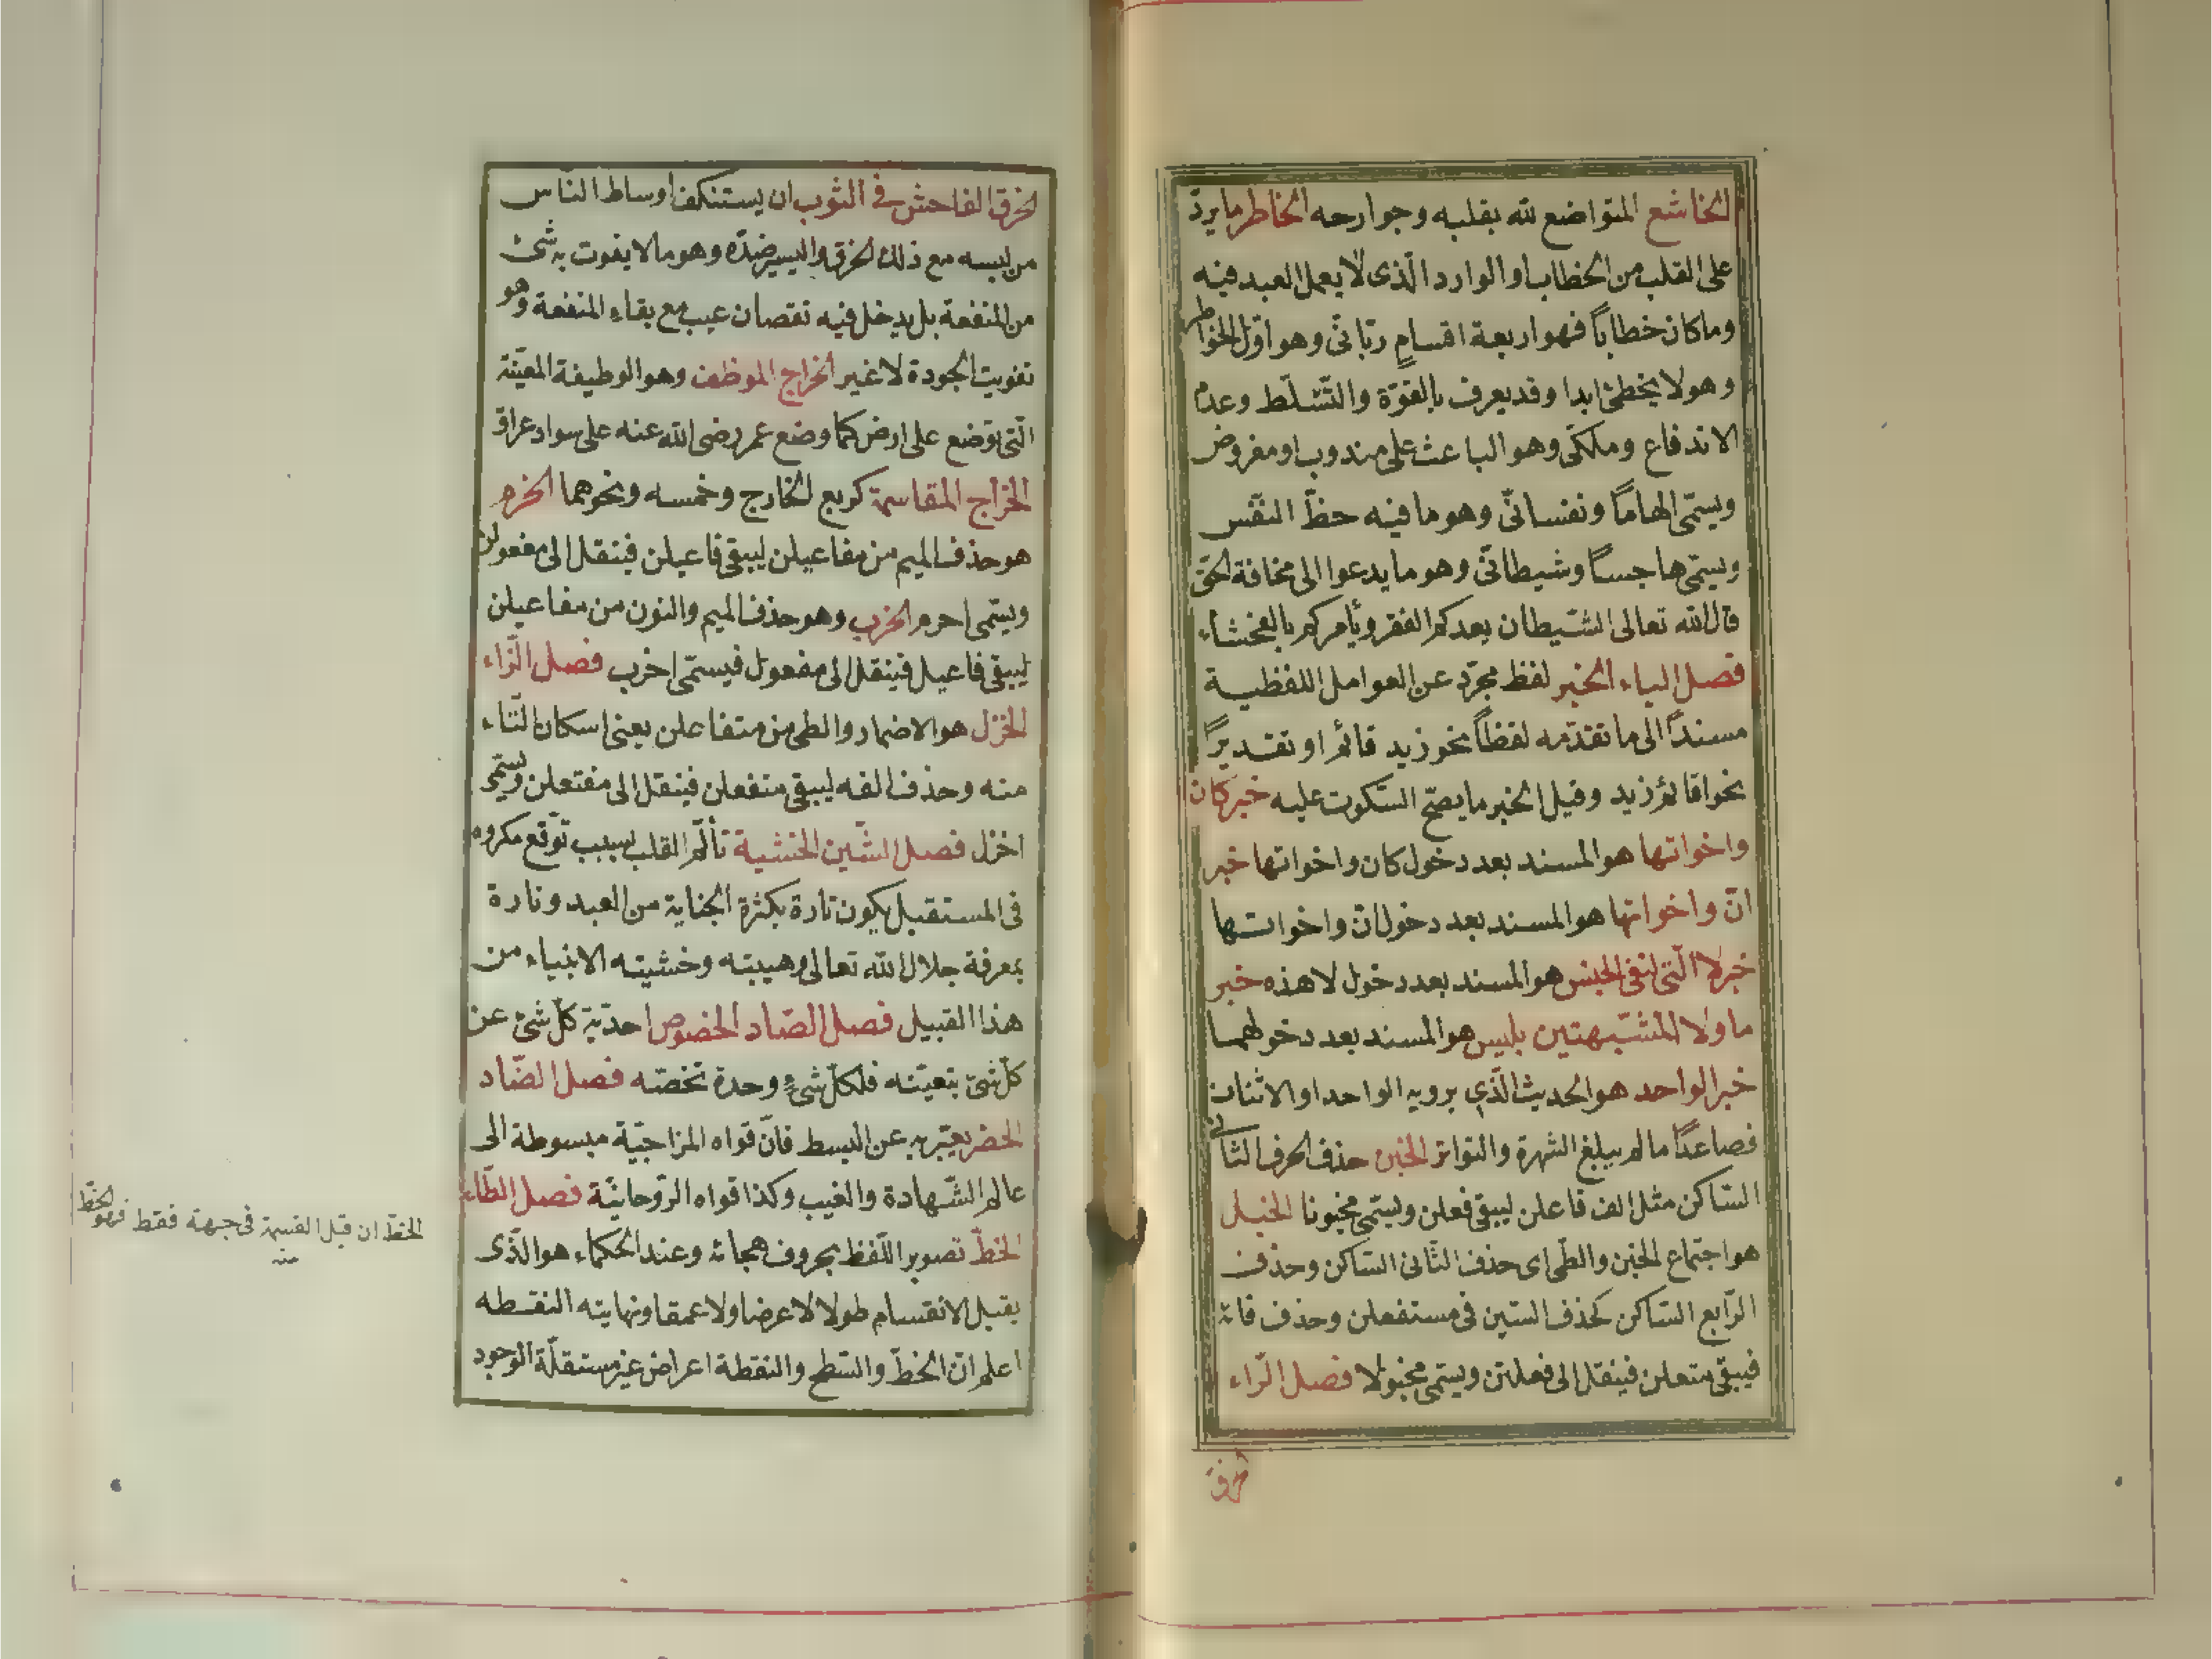 الخاشع المتواضع لله بقلبه وجوارحه الخاطر ما يردّ
على القلب من الخطاب او الوارد الّذى لا يعمل العبد فيه
وما كان خطاباً فهو اربعة اقسامٍ ربّانىّ وهو اوّل الخواطر
وهو لا يخطئ ابدا وقد يعرف بالقوّة والتّسّلط وعدم
الاندفاع وملكىّ وهو الباعث على مندوب او مفروض
ويسمّى الهاماً ونفسانىّ وهو ما فيه حظّ النفّس
ويسمّى هاجساً وشيطانىّ وهو ما يدعوا الى مخافة الحقّ
قال الله تعالى الشّيطان يعدكم الفقر ويأمركم بالفحشاء
فصل الباء الخبر لفظ مجرّد عن العوامل اللفظيـة
مسنداً الى ما تقدّمه لفظاً نحو زيد قائم او تقـديراً
نحو اقائم زيد وقيل الخبر ما يصحّ السّكوت عليه خبر كان
واخواتها هو المسند بعد دخول كان واخواتها خبر
انّ واخواتها هو المسند بعد دخول انّ واخواتـها
خبر لا الّتى لنفى الجنس هو المسند بعد دخول لا هذه خبر
ما ولا المشبّهتين بليس هو المسند بعد دخولهمـا
خبر الواحد هو الحديث الّذي يرويه الواحد او الاثنان
فصاعداً ما لم يبلغ الشهرة والتواتر الخبن حذف الحرف الثانى
السّاكن مثل الف فاعلن ليبقى فعلن ويسمّى مخبونا الخبـل
هو اجتماع الخبن والطّى اى حذف الثّانى السّاكن وحذف
الرّابع السّاكن كحذف السّين فى مستفعلن وحذف فائه
فيبقى متعلن فينقل الى فعلتن ويسمّى مخبولا فصل الرّاء
الخرق
الخرق الفاحش فى الثوب ان يستنكف اوساط النّاس
من لبسه مع ذلك الخرق واليسير ضدّه وهو ما لا يفوت به شئ
من المنفعة بل يدخل فيه نقصان عيب مع بقاء المنفعة وهو
تفويت الجودة لا غير الخراج الموظف وهو الوظيفة المعيّنة
الّتى توضع على ارض كما وضع عمر رضى الله عنه على سواد عراق
الخراج المقاسمة كربع الخارج وخمسه ونحوهما الخرم
هو حذف الميم من مفاعيلن ليبقى فاعيلن فينقل الى مفعولن
ويسمّى احرم الخرب وهو حذف الميم والنون من مفاعيلن
ليبقى فاعيل فينقل الى مفعول فيسمّى اخرب فصل الزّاء
الخزل هو الاضمار والطى من متفاعلن يعنى اسكان التّاء
منه وحذف الفه ليبقى متفعلن فينقل الى مفتعلن ويسمّى
اخزل فصل الشّين الخشية تألّم القلب بسبب توقّع مكروه
فى المستقبل يكون تارة بكثرة الجناية من العبد وتارة
بمعرفة جلال الله تعالى وهيبته وخشيته الانبياء من
هذا القبيل فصل الصّاد الخصوص احديّة كلّ شئ عن
كلّ شئ بتعيّنه فلكلّ شئٍ وحدة تخصّه فصل الضّاد
الخضر يعبّر به عن البسط فانّ قواه المزاجيّة مبسوطة الى
عالم الشّهادة والغيب وكذا قواه الرّوحانيّة فصل الطّاء
الخطّ تصوير اللّفظ بحروف هجائه وعند الحكماء هو الذّى
يقبل الانقسام طولا لا عرضا ولا عمقا ونهايته النقـطه
اعلم انّ الخطّ والسّطح والنقطة اعراض غير مستقلّة الوجود
الخطّ ان قبل القسمة فى جهة فقط فهو الخطّ
منه